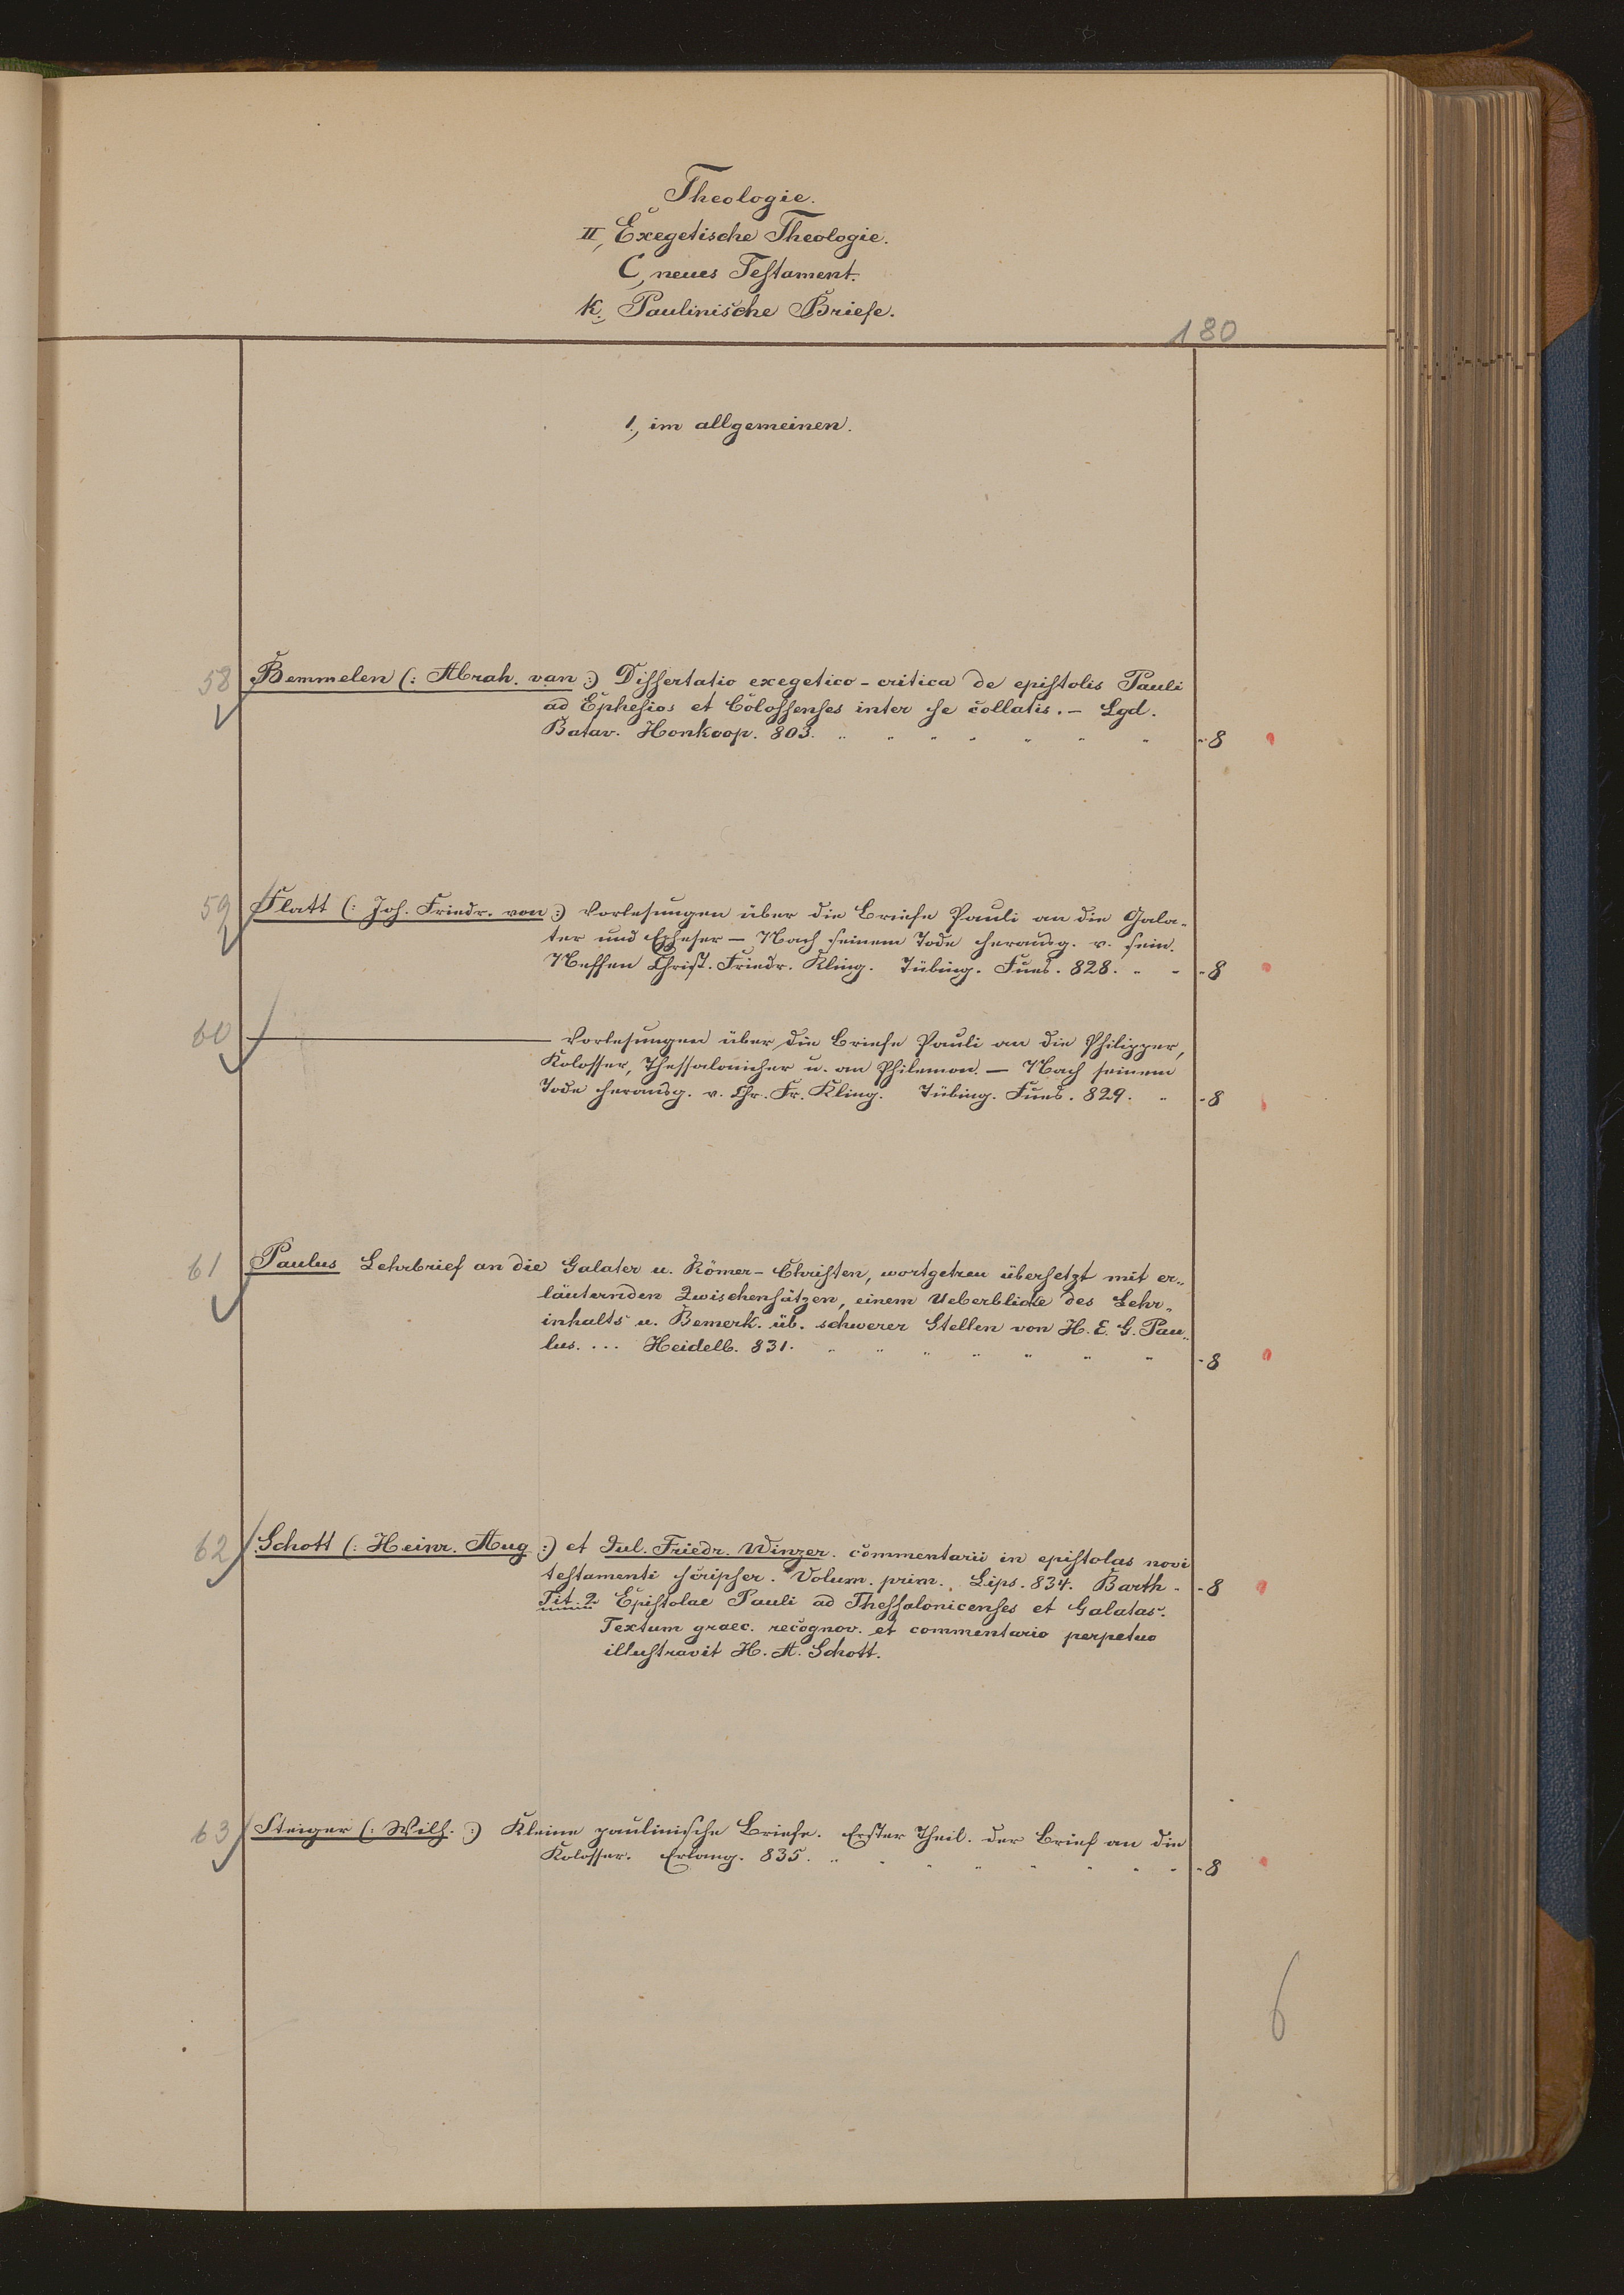 Theologie.
II, Exegetische Theologie.
C, neues Testament.
k., Paulinische Briefe.
180
1., im allgemeinen.
58 Bemmelen (: Abrah. van :) Dissertatio exegetico-critica de epistolis Pauli
ad Ephesios et Colossenses inter se collatis. - Lgd.
Batav. Honkoop. 803. " " " " " " " - 8
59 Flatt (: Joh. Friedr. von :) Vorlesungen über die Briefe Pauli an die Gala-
ter und Epheser - Nach seinem Tode herausg. v. sein.
Neffen Christ. Friedr. Kling. Tübing. Fues. 828. " " - 8
60 ——— Vorlesungen über die Briefe Pauli an die Philipper,
Kolosser, Thessalonicher u. an Philemon. - Nach seinem
Tode herausg. v. Chr. Fr. Kling. Tübing. Fues. 829. " - 8
61 Paulus Lehrbrief an die Galater u. Römer-Christen, wortgetreu übersetzt mit er-
läuternden Zwischensätzen, einem Ueberblicke des Lehr-
inhalts u. Bemerk. üb. schwerer Stellen von H. E. G. Pau-
lus. ... Heidelb. 831. " " " " " " " - 8
62 Schott (: Heinr. Aug :) et Jul. Friedr. Winzer. commentarii in epistolas novi
testamenti scripser. Volum. prim. Lips. 834. Barth - - 8
Tit. 2 Epistolae Pauli ad Thessalonicenses et Galatas.
Textum graec. recognov. et commentario perpetuo
illustravit H. A. Schott.
63 Steiger (: Wilh. :) Kleine paulinische Briefe. Erster Theil. der Brief an die
Kolosser. Erlang. 835. " " " " " " " " - 8
6